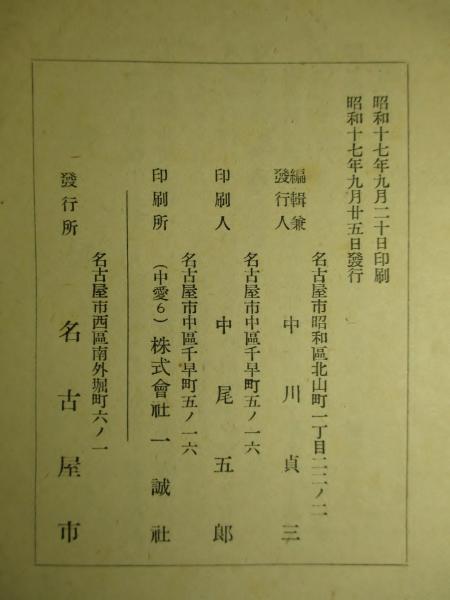 昭和十七年九月二十日印刷
昭和十七年九月廿五日發行
名古屋市昭和區北山町一丁目二二ノ二
編輯兼發行人 中川貞三
名古屋市中區千早町五ノ一六
印刷人 中尾五郎
名古屋市中區千早町五ノ一六
印刷所 (中愛6) 株式會社一誠社
名古屋市西區南外堀町六ノ一
發行所 名古屋市